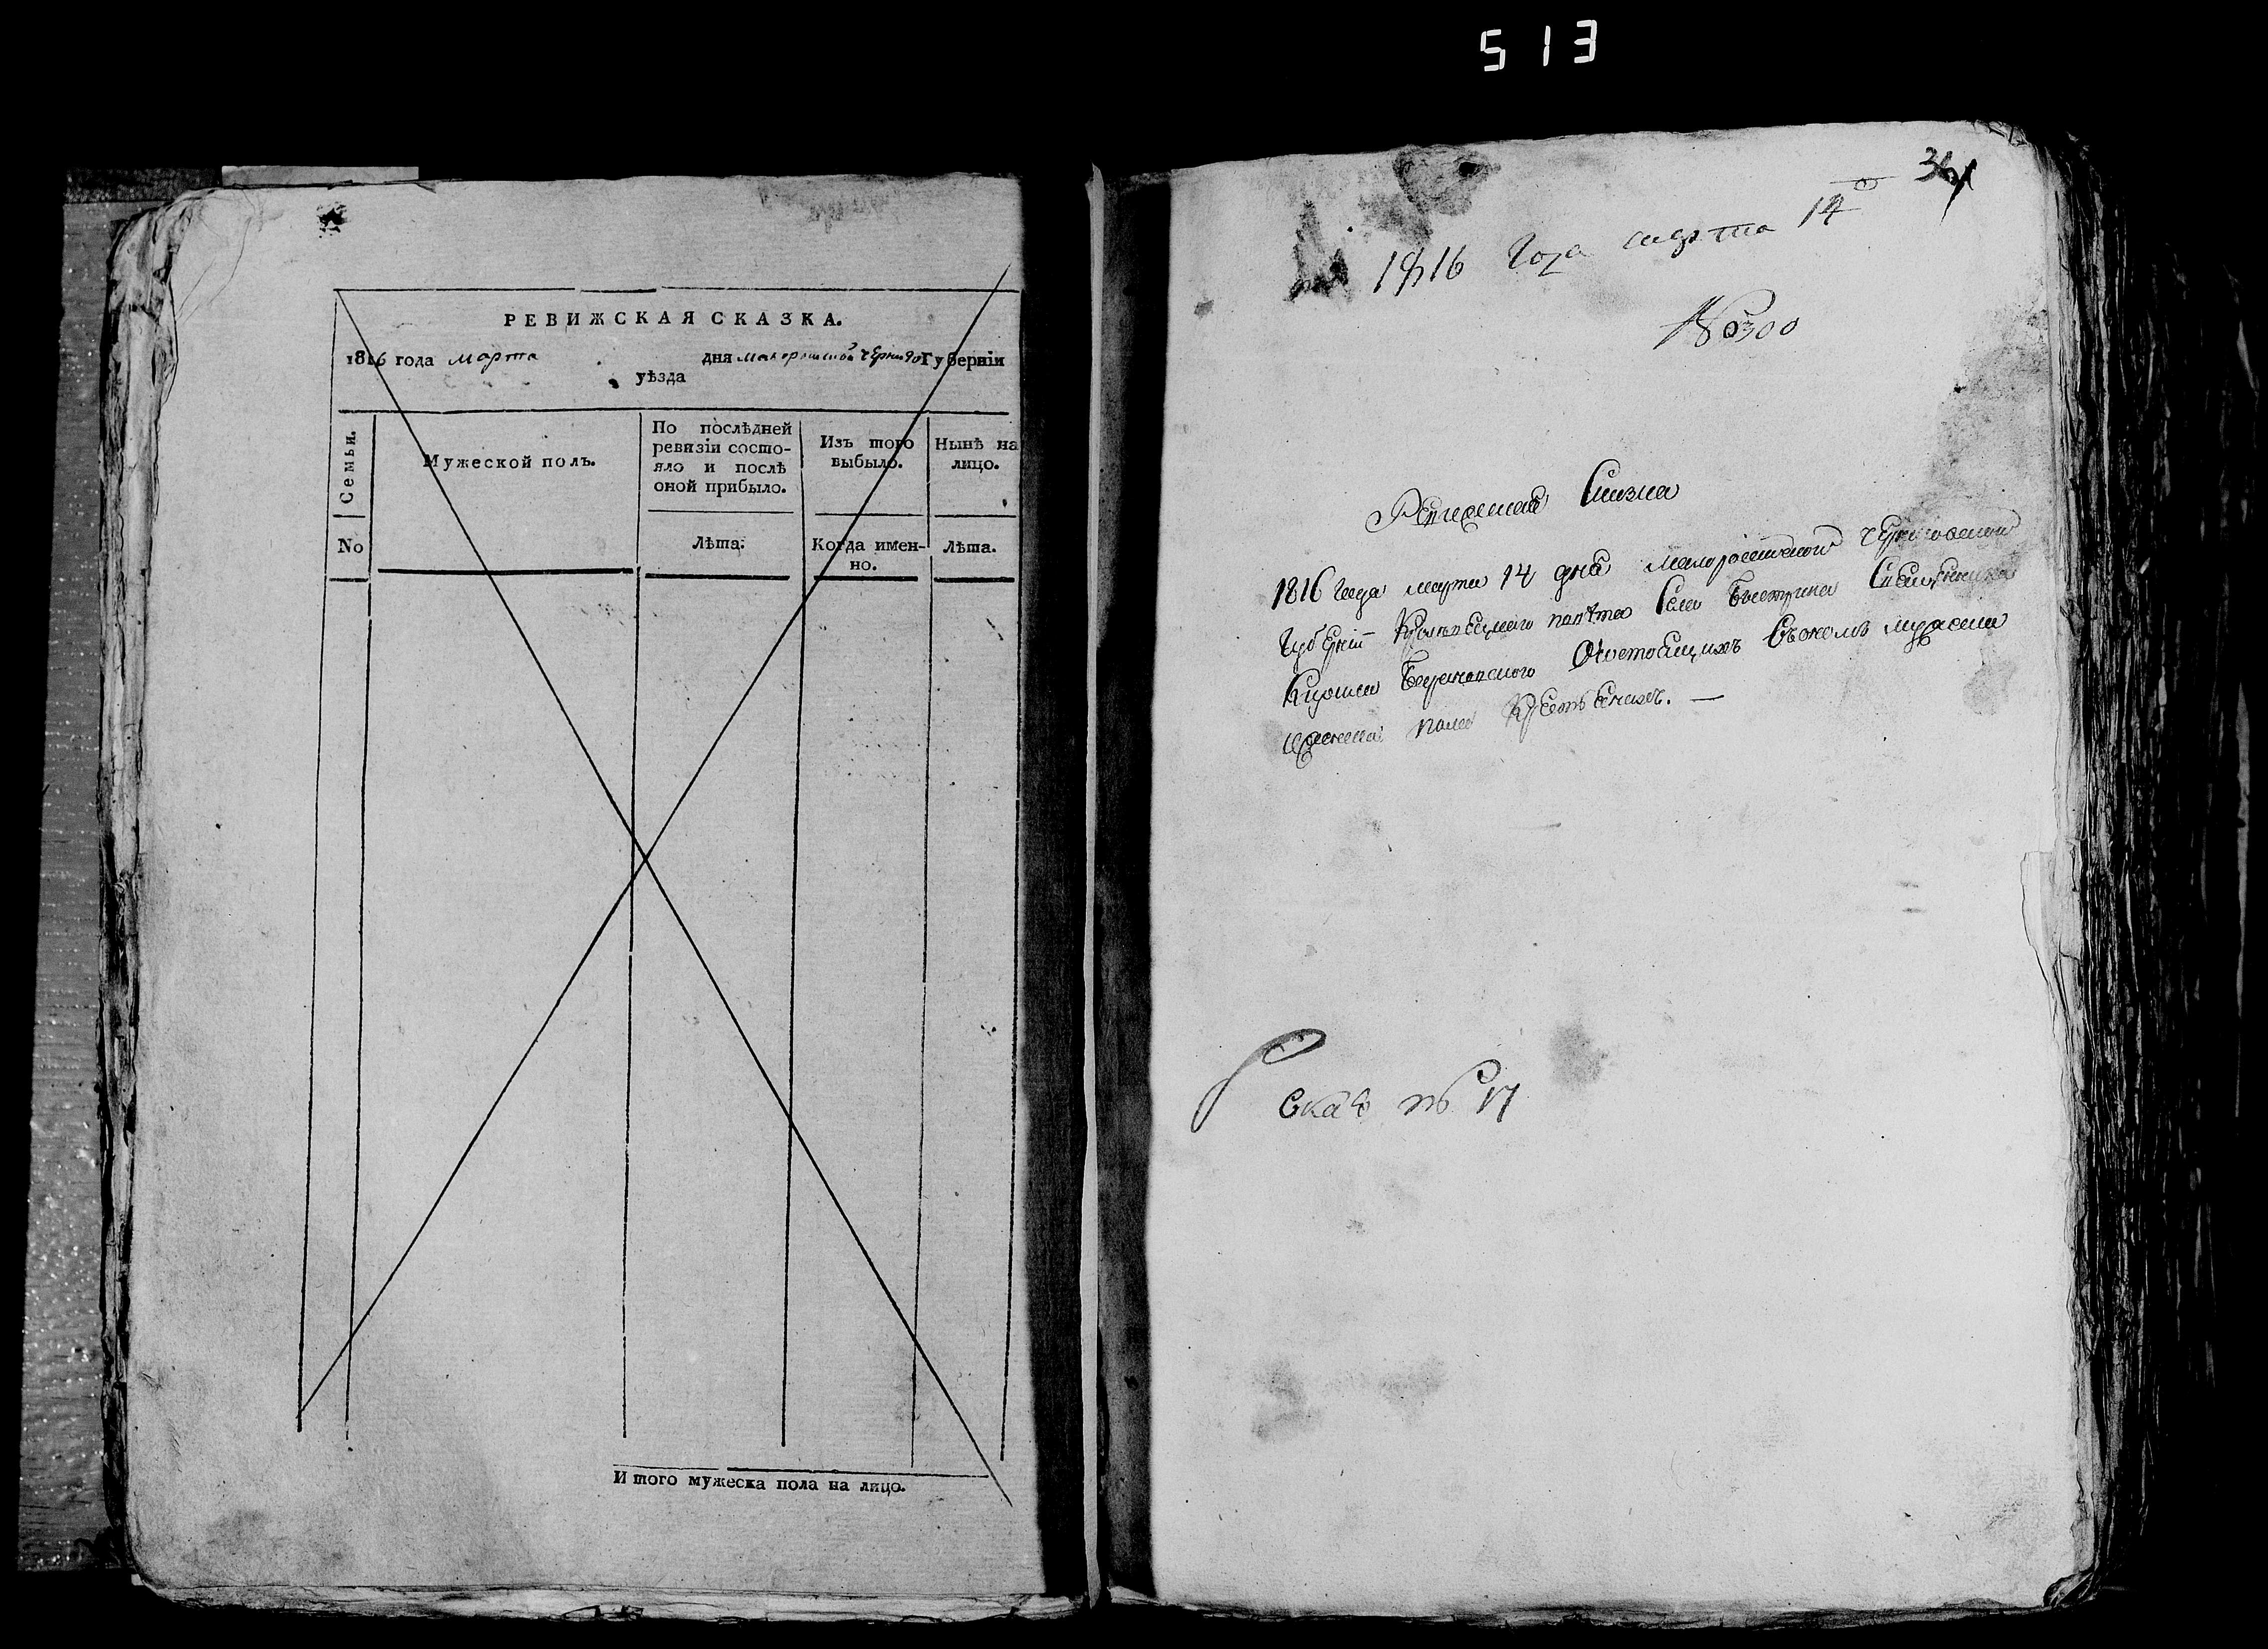 513
РЕВИЖСКАЯ СКАЗКА.
1816 года марта дня малоросийской Черниго Губернїи
уѣзда
Семьи.
Мужеской полъ.
По послѣдней
ревизїи состо-
яло и послѣ
оной прибыло.
Изъ того
выбыло.
Нынѣ на
лицо.
No
Лѣта.
Когда имен-
но.
Лѣта.
Итого мужеска пола на лицо.
1816 Года марта 14
№ 300
Ревижская Сказка
1816 года марта 14 дня малоросийской Черниговской
Губернїи Кролевецкаго повѣта Села Быстрика Священника
состоящихъ мужеска
женска пола крестьянахъ. —
№ 17